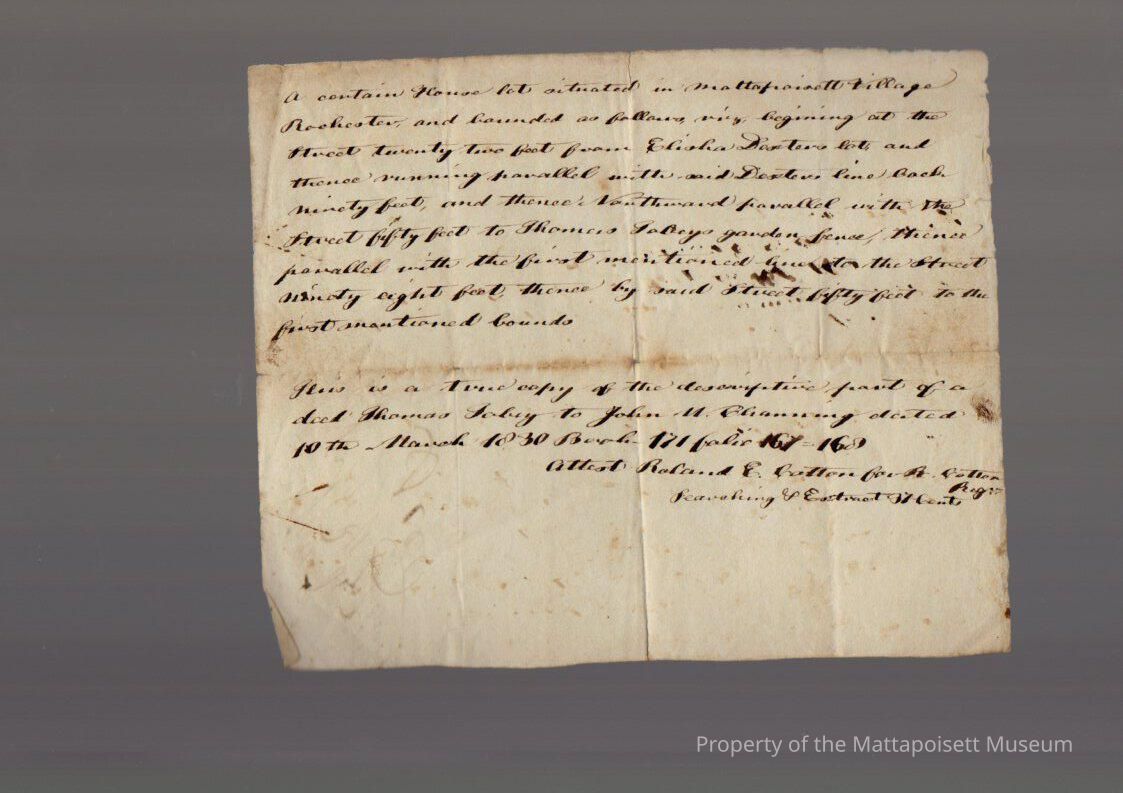 A certain House lot situated in Mattapoisett Village
Rochester, and bounded as follows, viz, begining at the
Street twenty two feet from Elisha Dexters lot, and
thence running parallel with said Dexters line back
ninety feet, and thence Southward parallel with the
Street fifty feet to Thomas Tobeys garden fence, thence
parallel with the first mentioned line to the Street
ninety eight feet, thence by said Street fifty feet to the
first mentioned bounds
This is a true copy of the descriptive part of a
deed Thomas Tobey to John M. Channing dated
10th March 1830 Book 171 folio 167=168
Attest Roland E. Cotton for R. Cotton
Regr
Searching & Extract Cents
Property of the Mattapoisett Museum